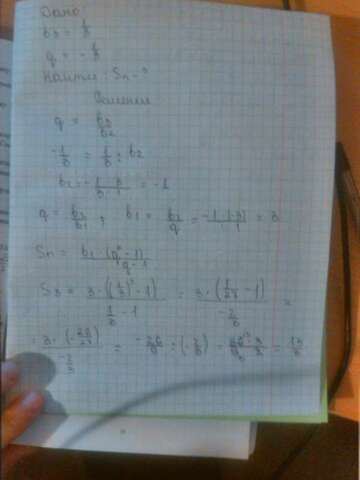 Дано:
b3 = 1/3
q = -1/3
Найти: Sn - ?
Решение
q = b3/b2
-1/3 = 1/3 : b2
b2 = -1·3/3·1 = -1
q = b2/b1; b1 = b2/q = -1·(-3)/1 = 3
Sn = b1·(qⁿ-1)/q-1
S3 = 3·((1/3)³-1)/1/3-1 = 3·(1/27-1)/-2/3 =
= 3·(-26/27)/-2/3 = -26/9 : (-2/3) =